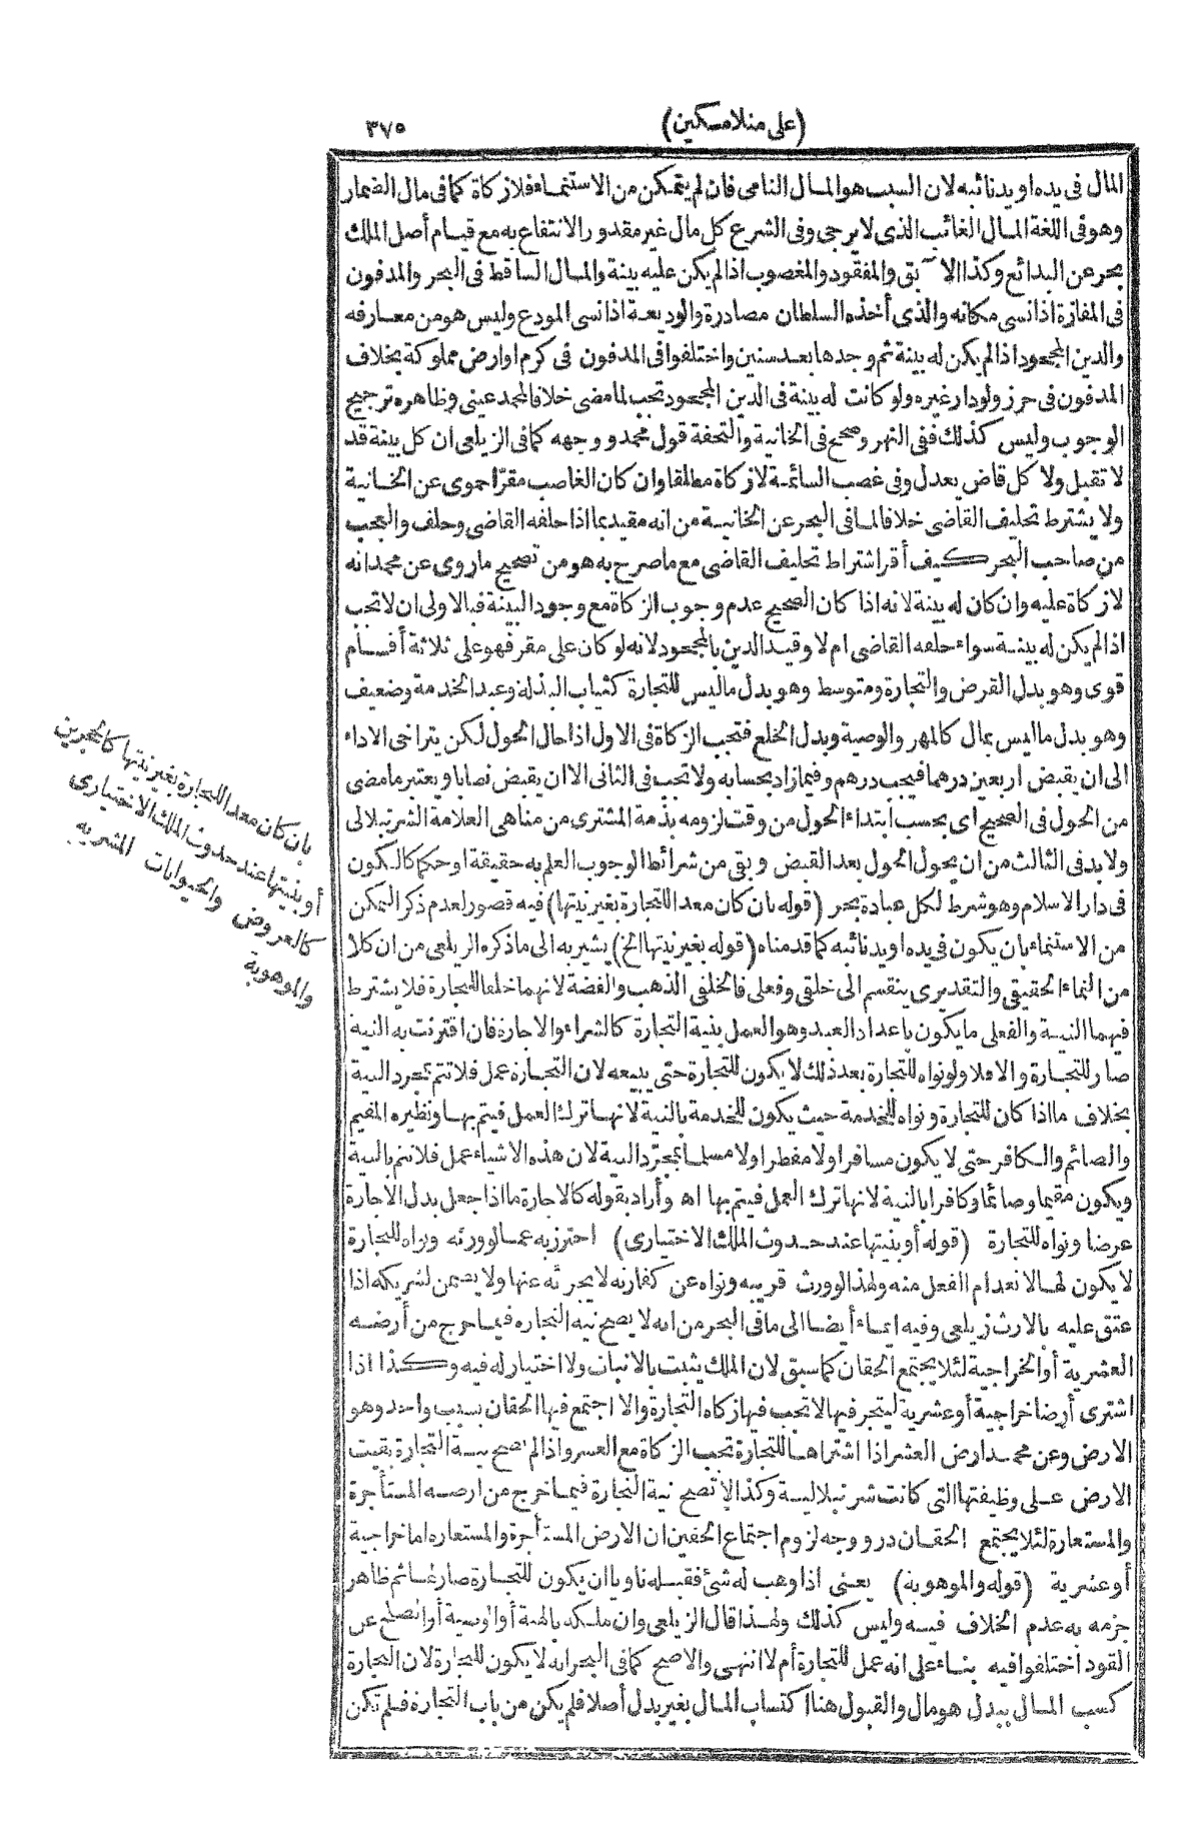 (على منلا مسكين)
٣٧٥
المال فى يده او يد نائبه لان السبب هو المال النامى فان لم يتمكن من الاستنماء فلا زكاة كما فى مال الضمار
وهو فى اللغة المال الغائب الذى لا يرجى وفى الشرع كل مال غير مقدور الانتفاع به مع قيام أصل الملك
بحر عن البدائع وكذا الآبق والمفقود والمغصوب اذا لم يكن عليه بينة والمال الساقط فى البحر والمدفون
فى المفازة اذا نسى مكانه والذى أخذه السلطان مصادرة والوديعة اذا نسى المودع وليس هو من معارفه
والدين المجحود اذا لم يكن له بينة ثم وجدها بعد سنين واختلفوا فى المدفون فى كرم او ارض مملوكة بخلاف
المدفون فى حرز ولو دار غيره ولو كانت له بينة فى الدين المجحود تجب لما مضى خلافا لمحمد عينى وظاهره ترجيح
الوجوب وليس كذلك ففى النهر وصحيح فى الخانية والتحفة قول محمد ووجهه كما فى الزيلعى ان كل بينة قد
لا تقبل ولا كل قاض يعدل وفى غصب السائمة لا زكاة مطلقا وان كان الغاصب مقرّا حموى عن الخانية
ولا يشترط تحليف القاضى خلافا لما فى البحر عن الخانية من انه مقيد بما اذا حلفه القاضى وحلف والعجب
من صاحب البحر كيف أقر اشتراط تحليف القاضى مع ما صرح به هو من تصحيح ما روى عن محمد انه
لا زكاة عليه وان كان له بينة لانه اذا كان الصحيح عدم وجوب الزكاة مع وجود البينة فبالاولى ان لا تجب
اذا لم يكن له بينة سواء حلفه القاضى ام لا وقيد الدين بالمجحود لانه لو كان على مقر فهو على ثلاثة أقسام
قوى وهو بدل القرض والتجارة ومتوسط وهو بدل ما ليس للتجارة كثياب البذلة وعبد الخدمة وضعيف
وهو بدل ما ليس بمال كالمهر والوصية وبدل الخلع فتجب الزكاة فى الاول اذا حال الحول لكن يتراخى الاداء
الى ان يقبض اربعين درهما فيجب درهم وفيما زاد بحسابه ولا تجب فى الثانى الا ان يقبض نصابا ويعتبر ما مضى
من الحول فى الصحيح اى بحسب ابتداء الحول من وقت لزومه بذمة المشترى من مناهى العلامة الشرنبلالى
ولا بد فى الثالث من ان يحول الحول بعد القبض وبقى من شرائط الوجوب العلم به حقيقة او حكما كالكون
فى دار الاسلام وهو شرط لكل عبادة بحر (قوله بان كان معدا للتجارة بغير نيتها) فيه قصور لعدم ذكر التمكن
من الاستنماء بان يكون فى يده او يد نائبه كما قدمناه (قوله بغير نيتها الخ) يشير به الى ما ذكره الزيلعى من ان كلا
من النماء الحقيقى والتقديرى ينقسم الى خلقى وفعلى فالخلقى الذهب والفضة لانهما خلقا للتجارة فلا يشترط
فيهما النية والفعلى ما يكون باعداد العبد وهو العمل بنية التجارة كالشراء والاجارة فان اقترنت به النية
صار للتجارة والا فلا ولو نواه للتجارة بعد ذلك لا يكون للتجارة حتى يبيعه لان التجارة عمل فلا تتم بمجرد النية
بخلاف ما اذا كان للتجارة ونواه للخدمة حيث يكون للخدمة بالنية لانها ترك العمل فيتم بها ونظيره المقيم
والصائم والكافر حتى لا يكون مسافرا ولا مفطرا ولا مسلما بمجرّد النية لان هذه الاشياء عمل فلا تتم بالنية
ويكون مقيما وصائما وكافرا بالنية لانها ترك العمل فيتم بها اه وأراد بقوله كالاجارة ما اذا جعل بدل الاجارة
عرضا ونواه للتجارة (قوله أو بنيتها عند حدوث الملك الاختيارى) احترز به عما لو ورثه ونواه للتجارة
لا يكون لها لانعدام الفعل منه ولهذا لو ورث قريبه ونواه عن كفارته لا يجزئه عنها ولا يضمن لشريكه اذا
عتق عليه بالارث زيلعى وفيه ايماء أيضا الى ما فى البحر من انه لا يصح نية التجارة فيما خرج من أرضه
العشرية أو الخراجية لئلا يجتمع الحقان كما سبق لان الملك يثبت بالانبات ولا اختيار له فيه وكذا اذا
اشترى أرضا خراجية أو عشرية ليتجر فيها لا تجب فيها زكاة التجارة والا اجتمع فيها الحقان بسبب واحد وهو
الارض وعن محمد ارض العشر اذا اشتراها للتجارة تجب الزكاة مع العشر واذا لم تصح نية التجارة بقيت
الارض على وظيفتها التى كانت شرنبلالية وكذا لا تصح نية التجارة فيما خرج من ارضه المستأجرة
والمستعارة لئلا يجتمع الحقان درر ووجه لزوم اجتماع الحقين ان الارض المستأجرة والمستعارة اما خراجية
أو عشرية (قوله والموهوبة) يعنى اذا وهب له شئ فقبله ناويا ان يكون للتجارة صار ظاهر
جزمه به عدم الخلاف فيه وليس كذلك ولهذا قال الزيلعى وان ملكه بالهبة أو الوصية أو الصلح عن
القود اختلفوا فيه بناء على انه عمل للتجارة أم لا انتهى والاصح كما فى البحر انه لا يكون للتجارة لان التجارة
كسب المال ببدل هو مال والقبول هنا اكتساب المال بغير بدل أصلا فلم يكن من باب التجارة فلم تكن
بان كان معدا للتجارة بغير نيتها كالحجرين
أو بنيتها عند حدوث الملك الاختيارى
كالعروض والحيوانات المشريه
والموهوبة